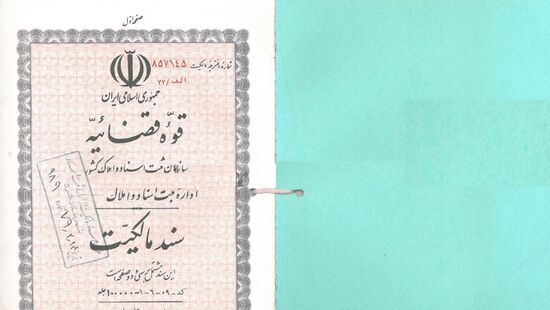 صفحه اول
شماره دفترچه مالکیت ۸۵۷۱۴۵
الف/۷۷
جمهوری اسلامی ایران
قوّه قضائیّه
سازمان ثبت اسناد و املاک کشور
اداره ثبت اسناد و املاک
سند مالکیّت
این سند مشتمل بر سی و دو صفحه است
کد ۰۹-۶-۱-۱۰۰۰۰۰ جلد